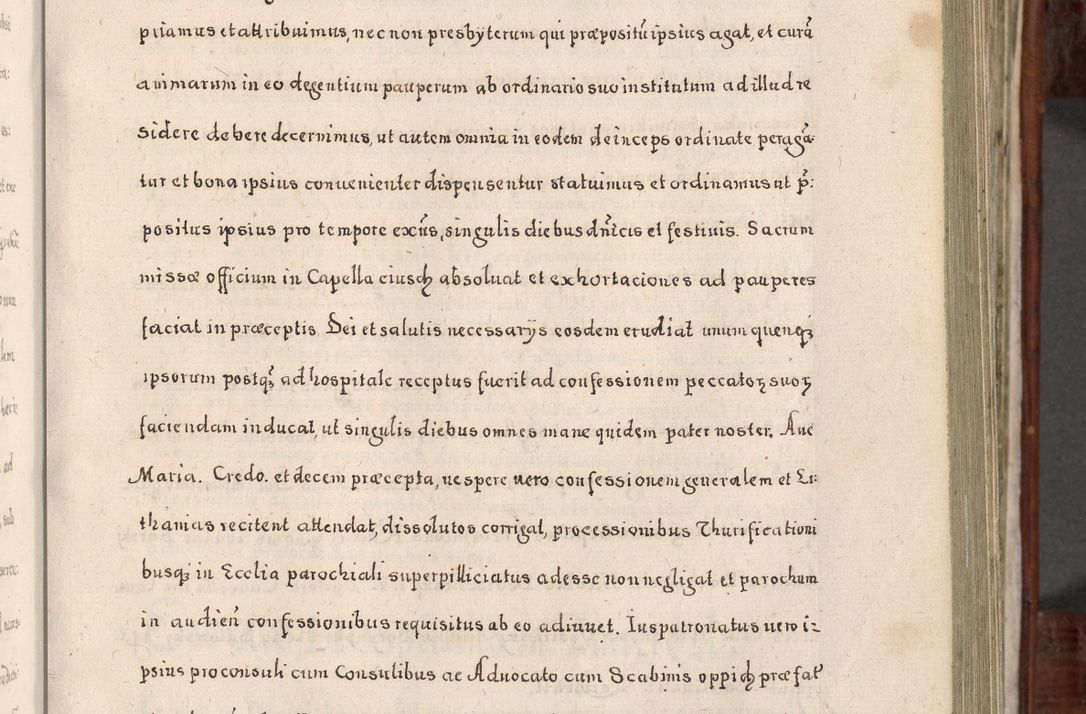 priamus et attribuimus, nec non presbyterum qui præpositũ ipsius agat, et curã
animarum in eo degentium pauperum ab ordinario suo institutum ad illud re
sidere debere decernimus, ut autem omnia in eodem deinceps ordinate peragã-
tur et bona ipsius conuenienter dispensentur statuimus et ordinamus ut p̃:
positus ipsius pro tempore exñs, singulis diebus dñicis et festiuis. Sacrum
missæ officium in Capella eiusdẽ absoluat et exhortaciones ad pauperes
faciat in præceptis Dei et salutis necessarÿs eosdem erudiat unum quenqꝫ
ipsorum postqꝫ ad hospitale receptus fuerit ad confessionem peccatoꝝ suoꝝ
faciendam inducat, ut singulis diebus omnes mane quidem pater noster. Aue
Maria. Credo. et decem præcepta, uespere uero confessionem generalem et Li-
thanias recitent attendat, dissolutos corrigat, processionibus Thurificationi
busqꝫ in Ecclia parochiali superpilliciatus adesse non negligat et parochum
in audieñ confessionibus requisitus ab eo adiuuet. Iuspatronatus uero i-
psius proconsuli cum Consulibus ac Aduocato cum Scabinis oppidi præfat